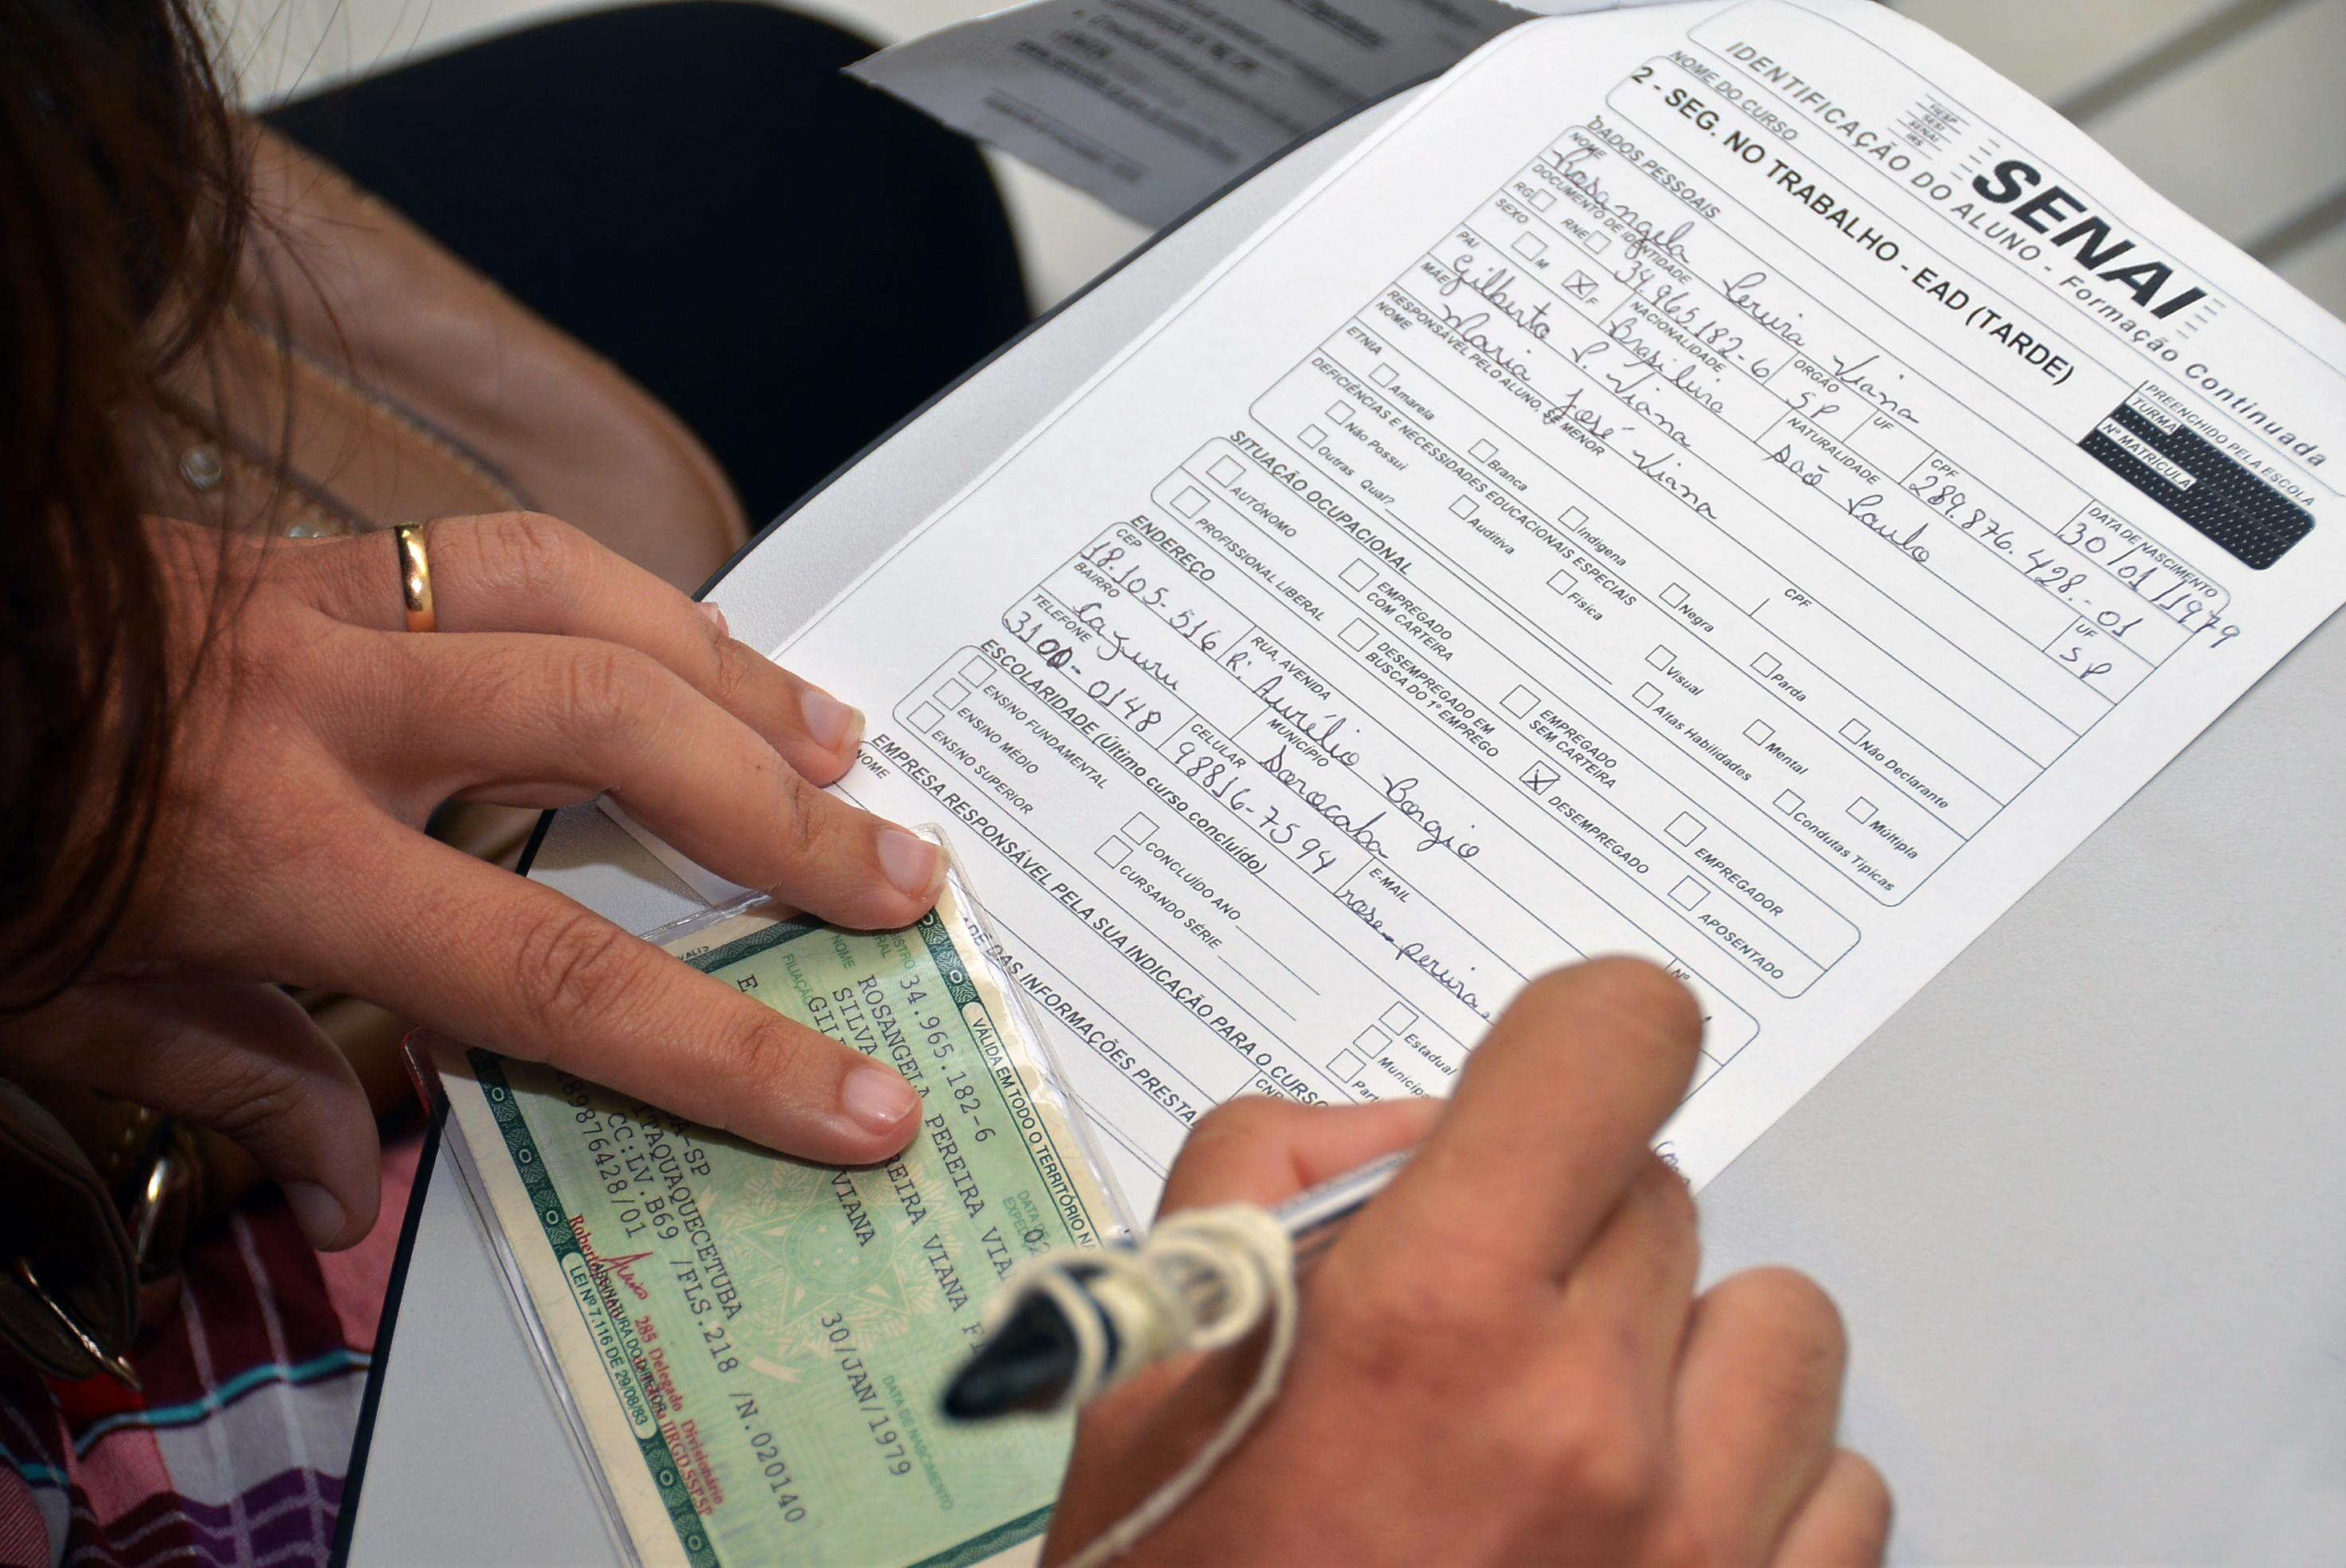 FIESP
SESI
SENAI
IRS
SENAI
IDENTIFICAÇÃO DO ALUNO - Formação Continuada
NOME DO CURSO
2 - SEG. NO TRABALHO - EAD (TARDE)
PREENCHIDO PELA ESCOLA
TURMA
Nº MATRÍCULA
DADOS PESSOAIS
NOME
Rosangela Pereira Viana
DATA DE NASCIMENTO
30/01/1979
DOCUMENTO DE IDENTIDADE
RG RNE 34.965.182-6
ORGÃO
SP
UF
CPF
289.876.428-01
SEXO
M F
NACIONALIDADE
Brasileira
NATURALIDADE
São Paulo
UF
SP
PAI
Gilberto P. Viana
MÃE
Maria José Viana
RESPONSÁVEL PELO ALUNO, SE MENOR
NOME
CPF
ETNIA
Amarela Branca Indígena Negra Parda Não Declarante
DEFICIÊNCIAS E NECESSIDADES EDUCACIONAIS ESPECIAIS
Não Possui Auditiva Física Visual Mental Múltipla
Outras Qual? Altas Habilidades Condutas Típicas
SITUAÇÃO OCUPACIONAL
AUTÔNOMO EMPREGADO COM CARTEIRA EMPREGADO SEM CARTEIRA EMPREGADOR
PROFISSIONAL LIBERAL DESEMPREGADO EM BUSCA DO 1º EMPREGO DESEMPREGADO APOSENTADO
ENDEREÇO
CEP
18.105-516
RUA, AVENIDA
R. Aurélio Borgio
Nº
BAIRRO
Cajuru
MUNICÍPIO
Sorocaba
TELEFONE
3100-0148
CELULAR
98816-7594
E-MAIL
rose-pereira.
ESCOLARIDADE (Último curso concluído)
ENSINO FUNDAMENTAL CONCLUÍDO ANO Estadual
ENSINO MÉDIO CURSANDO SÉRIE
ENSINO SUPERIOR
EMPRESA RESPONSÁVEL PELA SUA INDICAÇÃO PARA O CURSO
NOME
DAS INFORMAÇÕES
VÁLIDA EM TODO O TERRITÓRIO
34.965.182-6
NOME
ROSANGELA PEREIRA
FILIAÇÃO
SILVA
VIANA
VIANA
E
30/JAN/1979
DATA DE NASCIMENTO
-SP
ITAQUAQUECETUBA
CC:LV.B69 /FLS.218 /N.020140
289876428/01
285 Delegado Divisionário
ASSINATURA DO DIRETOR
LEI Nº 7.116 DE 29/08/83